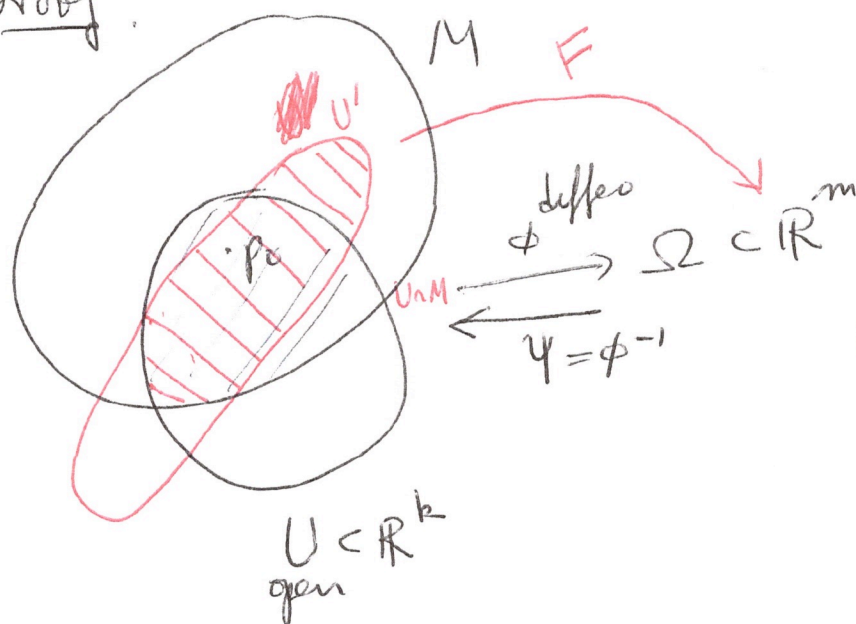 Proof.
M
F
U'
p₀
ϕ diffeo
Ω ⊂ ℝᵐ
U∩M
ψ = ϕ⁻¹
U ⊂ ℝᵏ
open